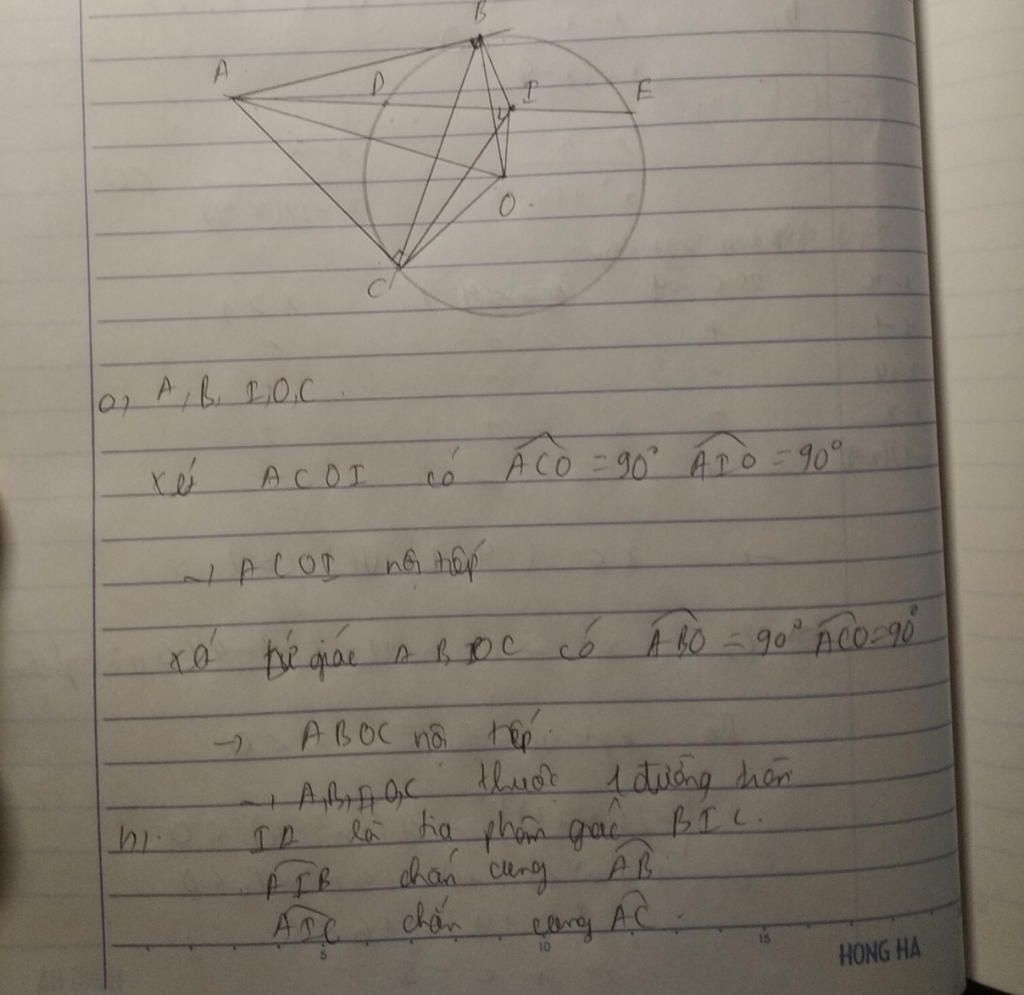 B
A
D
I
E
O
C
a, A, B, I, O, C.
xét ACOI có ACO = 90° AIO = 90°
→ ACOI nội tiếp
xét tứ giác ABOC có ABO = 90° ACO = 90°
→ ABOC nội tiếp.
→ A, B, I, O, C thuộc 1 đường tròn
b, là tia phân giác BIC.
AIB chắn cung AB
AIC chắn cung AC.
5 10 15
HONG HA